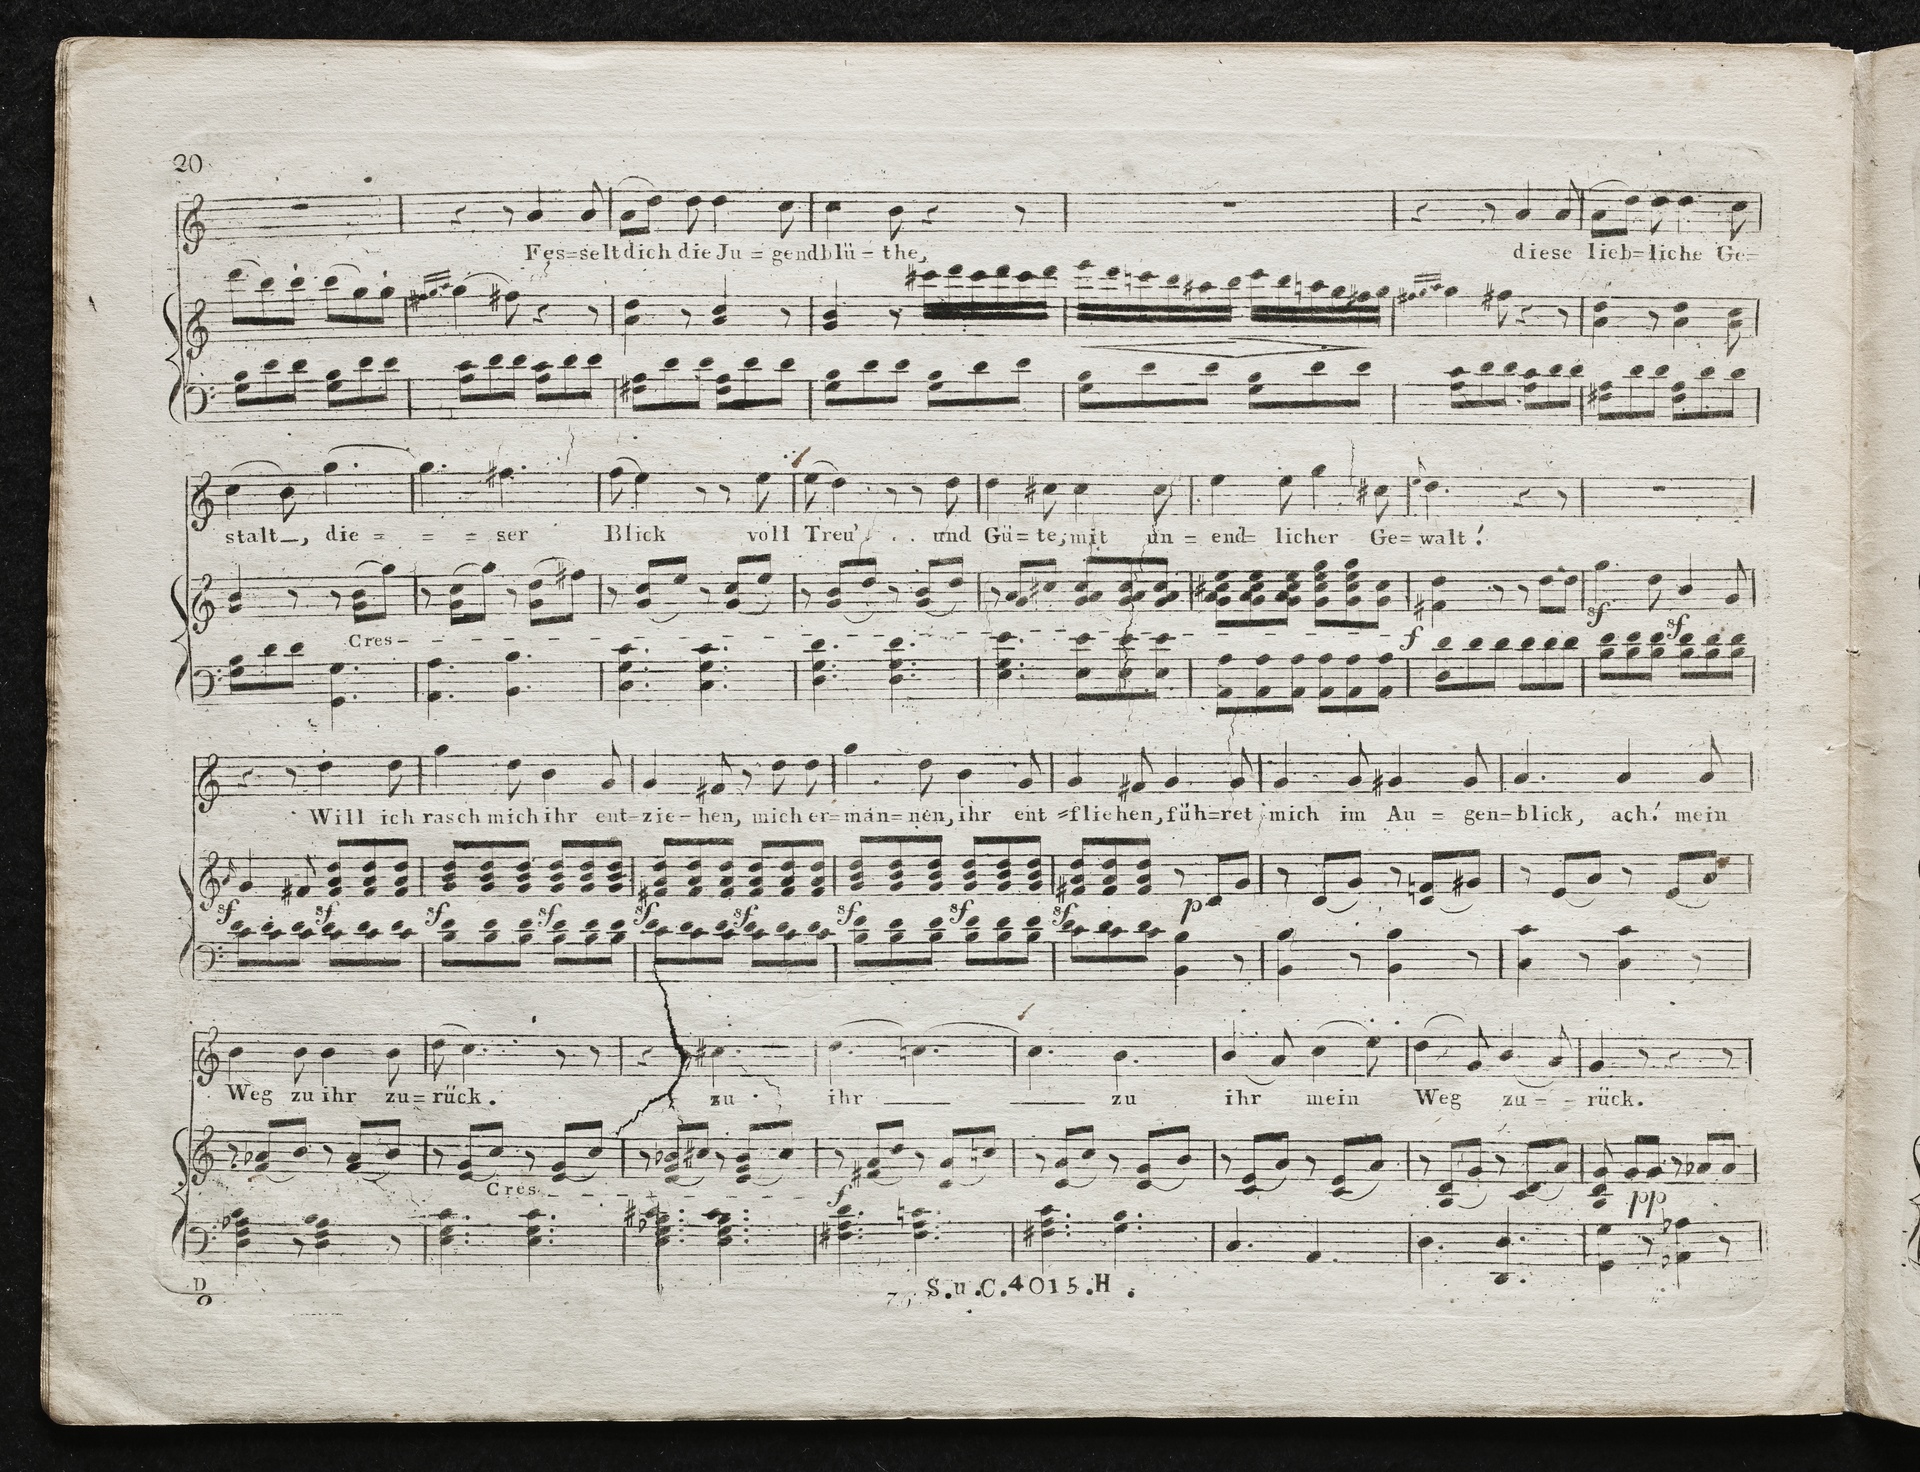 20
Fes=selt dich die Ju = gendblü - the, diese lieb=liche Ge=
stalt_, die = = = ser Blick voll Treu' . . und Gü=te, mit un = end= licher Ge=walt!
Cres-
f sf sf
Will ich rasch mich ihr ent=zie-hen, mich er=man=nen, ihr ent =fliehen, füh=ret mich im Au = gen=blick, ach! mein
sf sf sf sf sf sf sf sf sf p
Weg zu ihr zu=rück. zu ihr zu ihr mein Weg zu - - rück.
Cres. f pp
S.u.C.4015.H.